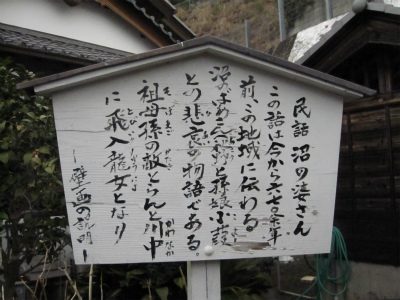 民話 沼の婆さん
この話は今から六七〇年
前、この地域に伝わる
沼のばあさんと孫娘小鼓
との悲哀の物語である
祖母孫の敵とらんと川中
に飛入龍女となり
―壁画の説明―